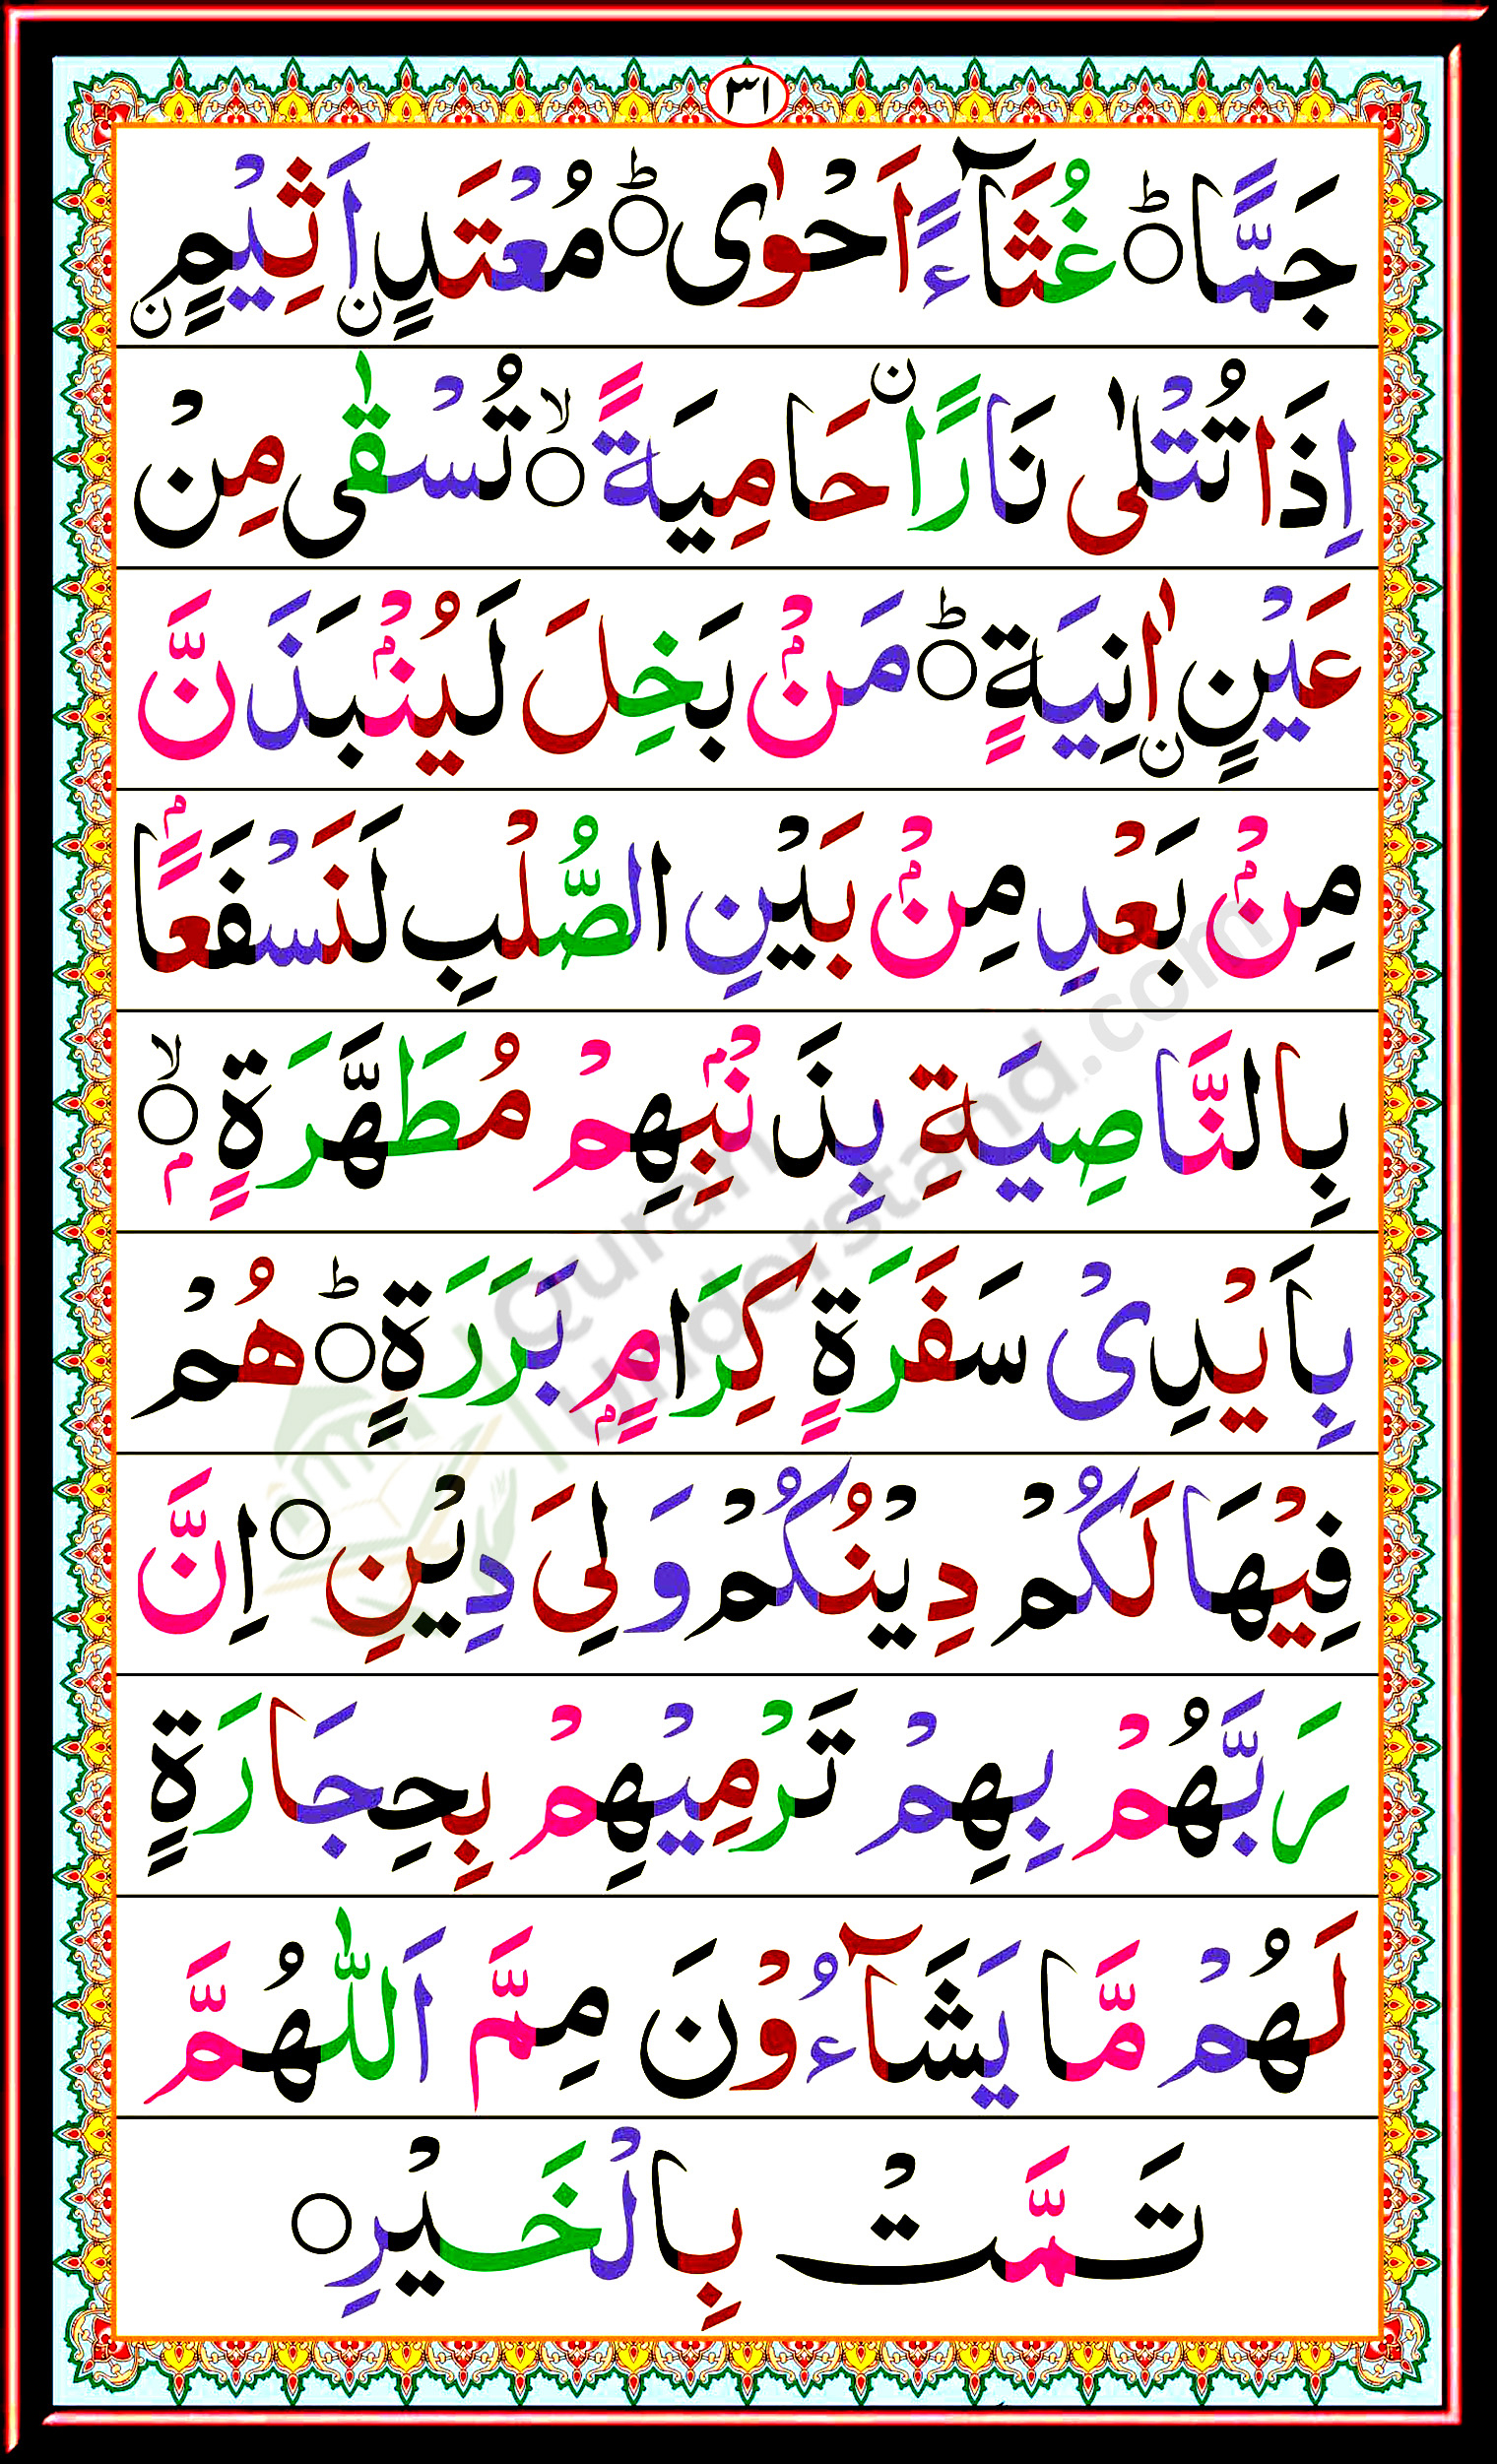 ٣١
جَمًّا ۝ؕ غُثَآءً اَحْوٰى ۝ؕ مُعْتَدٍ اَثِيْمٍ ن ن
اِذَا تُتْلٰى نَارًا ن حَامِيَةً ۝ۙ تُسْقٰى مِنْ
عَيْنٍ ن اٰنِيَةٍ ۝ؕ مَنْۢ بَخِلَ لَيُنْۢبَذَنَّ
مِنْۢ بَعْدِ مِنْۢ بَيْنِ الصُّلْبِ لَنَسْفَعًاۢ
بِالنَّاصِيَةِ بِذَنْۢبِهِمْ مُطَهَّرَةٍۭ ۝ۙ
بِاَيْدِىْ سَفَرَةٍ كِرَامٍۭ بَرَرَةٍ ۝ؕ هُمْ
فِيْهَا لَكُمْ دِيْنُكُمْ وَلِىَ دِيْنِ ۝ اِنَّ
رَبَّهُمْ بِهِمْ تَرْمِيْهِمْ بِحِجَارَةٍ
لَهُمْ مَّا يَشَآءُوْنَ مِمَّ اَللّٰهُمَّ
تَمَّتْ بِالْخَيْرِ ۝
Quran
Understand.com